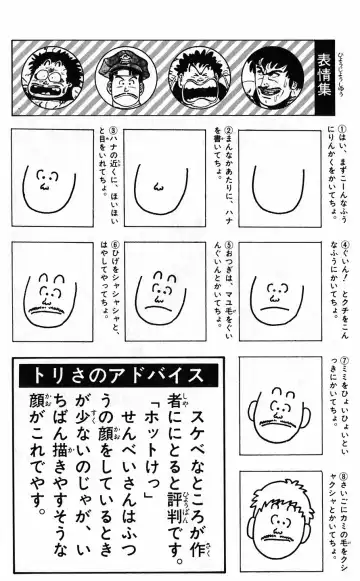 ひょうじょうしゅう
表情集
①はい、まずこーんなふう
にりんかくをかいてちょ。
②まんなかあたりに、ハナ
を書いてちょ。
③ハナの近くに、ほいほい
と目をいれてちょ。
④ぐいん！とクチをこん
なふうにかいてちょ。
⑤おつぎは、マユ毛をぐい
んぐいんとかいてちょ。
⑥ひげをシャシャシャと、
はやしてやってちょ。
⑦ミミをひょいひょいとい
っきにかいてちょ。
⑧さいごにカミの毛をクシ
ャクシャとかいてちょ。
トリさのアドバイス
スケベなところが作
者ににとると評判です。
「ホットけっ」
せんべいさんはふつ
うの顔をしているとき
が少ないのじゃが、い
ちばん描きやすそうな
顔がこれでやす。